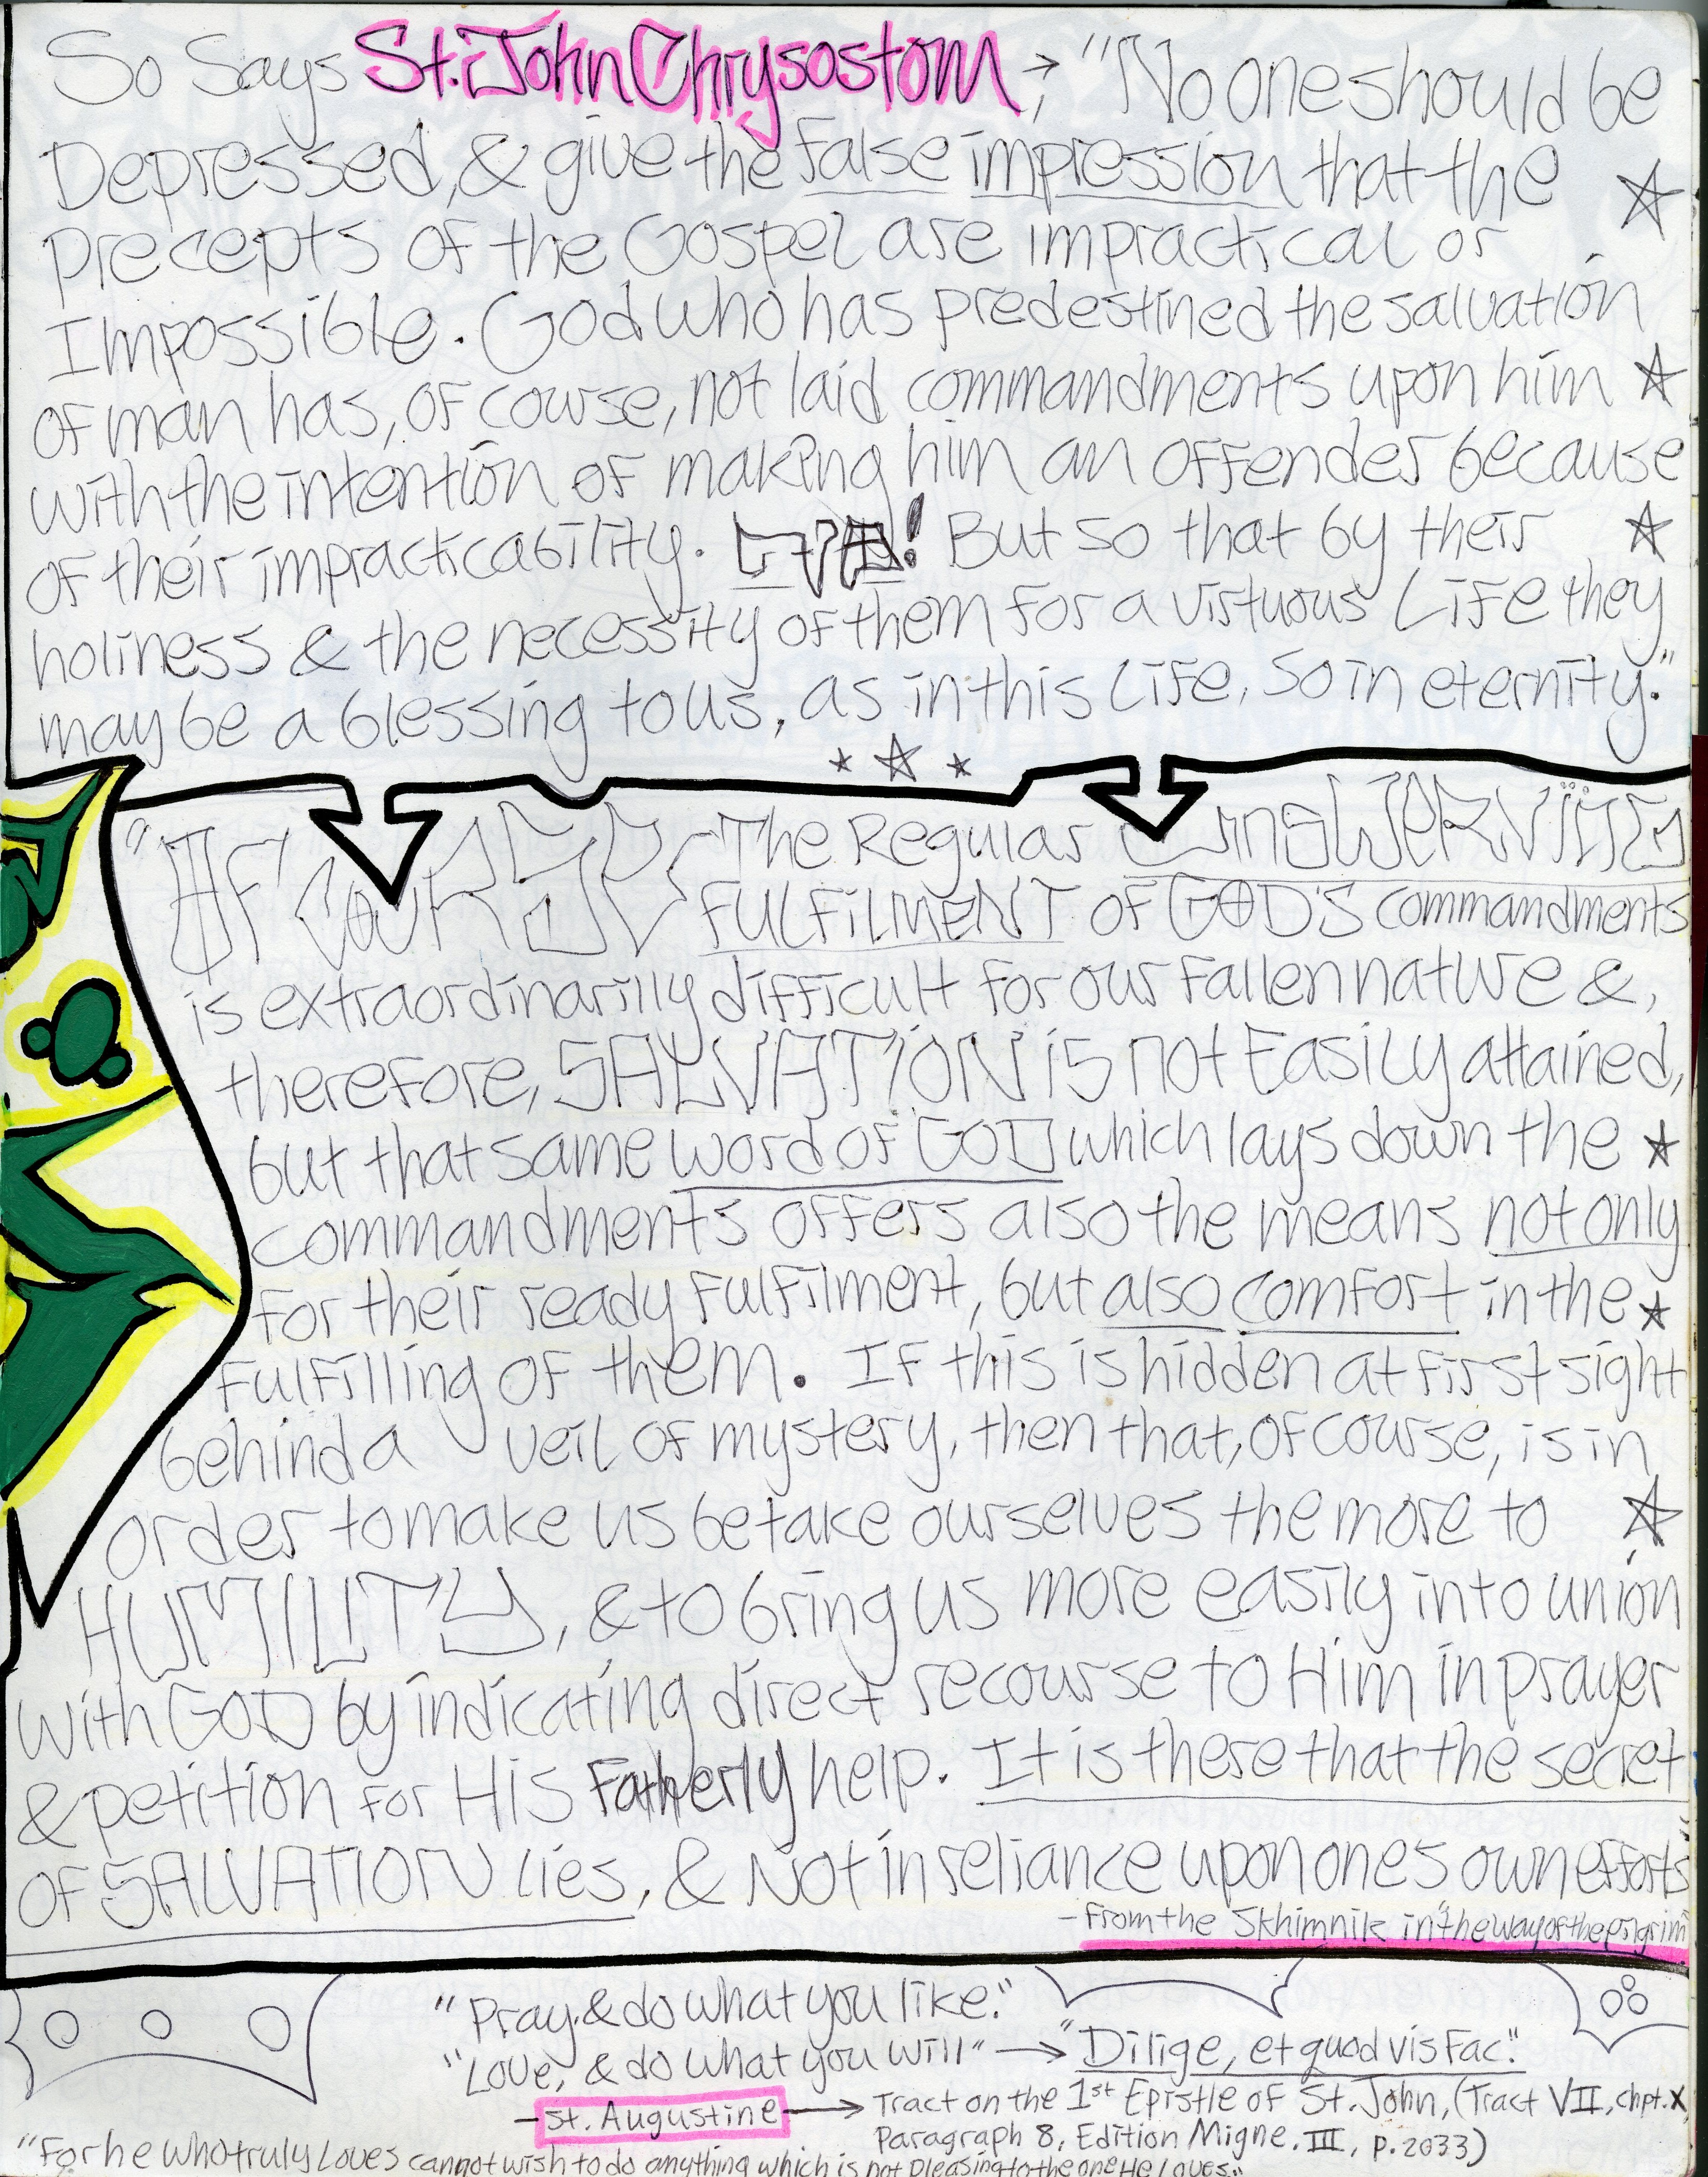 So Says St. John Chrysostom →, "No one should be
Depressed, & give the false impression that the
precepts of the Gospel are impractical or
Impossible. God who has predestined the salvation
of man has, of course, not laid commandments upon him
with the intention of making him an offender because
of their impracticability. But so that by their
holiness & the necessity of them for a virtuous Life they
may be a blessing to us, as in this Life, so in eternity."
"OF COURSE The Regular UnSWERViNG
FULFiLMENT OF GOD'S commandments
is extraordinarilly difficult for our fallen nature &,
therefore, SALVATiON is not Easily attained,
but that same word of GOD which lays down the
commandments offers also the means not only
for their ready fulfilment, but also comfort in the
fulfilling of them. If this is hidden at first sight
behind a veil of mystery, then that, of course, is in
order to make us betake ourselves the more to
HUMILITY, & to bring us more easily into union
with GOD by indicating direct recourse to Him in prayer
& petition for His Fatherly help. It is there that the secret
of SALVATION Lies, & Not in reliance upon ones own efforts"
- From the Skhimnik in "the way of the pilgrim"
"Pray, & do what you like."
"Love, & do what you will" → "Dilige, et quod vis Fac."
- St. Augustine → Tract on the 1st Epistle of St. John, (Tract VII, chpt. X,
Paragraph 8, Edition Migne. III, p. 2033)
"For he who truly Loves cannot wish to do anything which is not pleasing to the one He Loves."